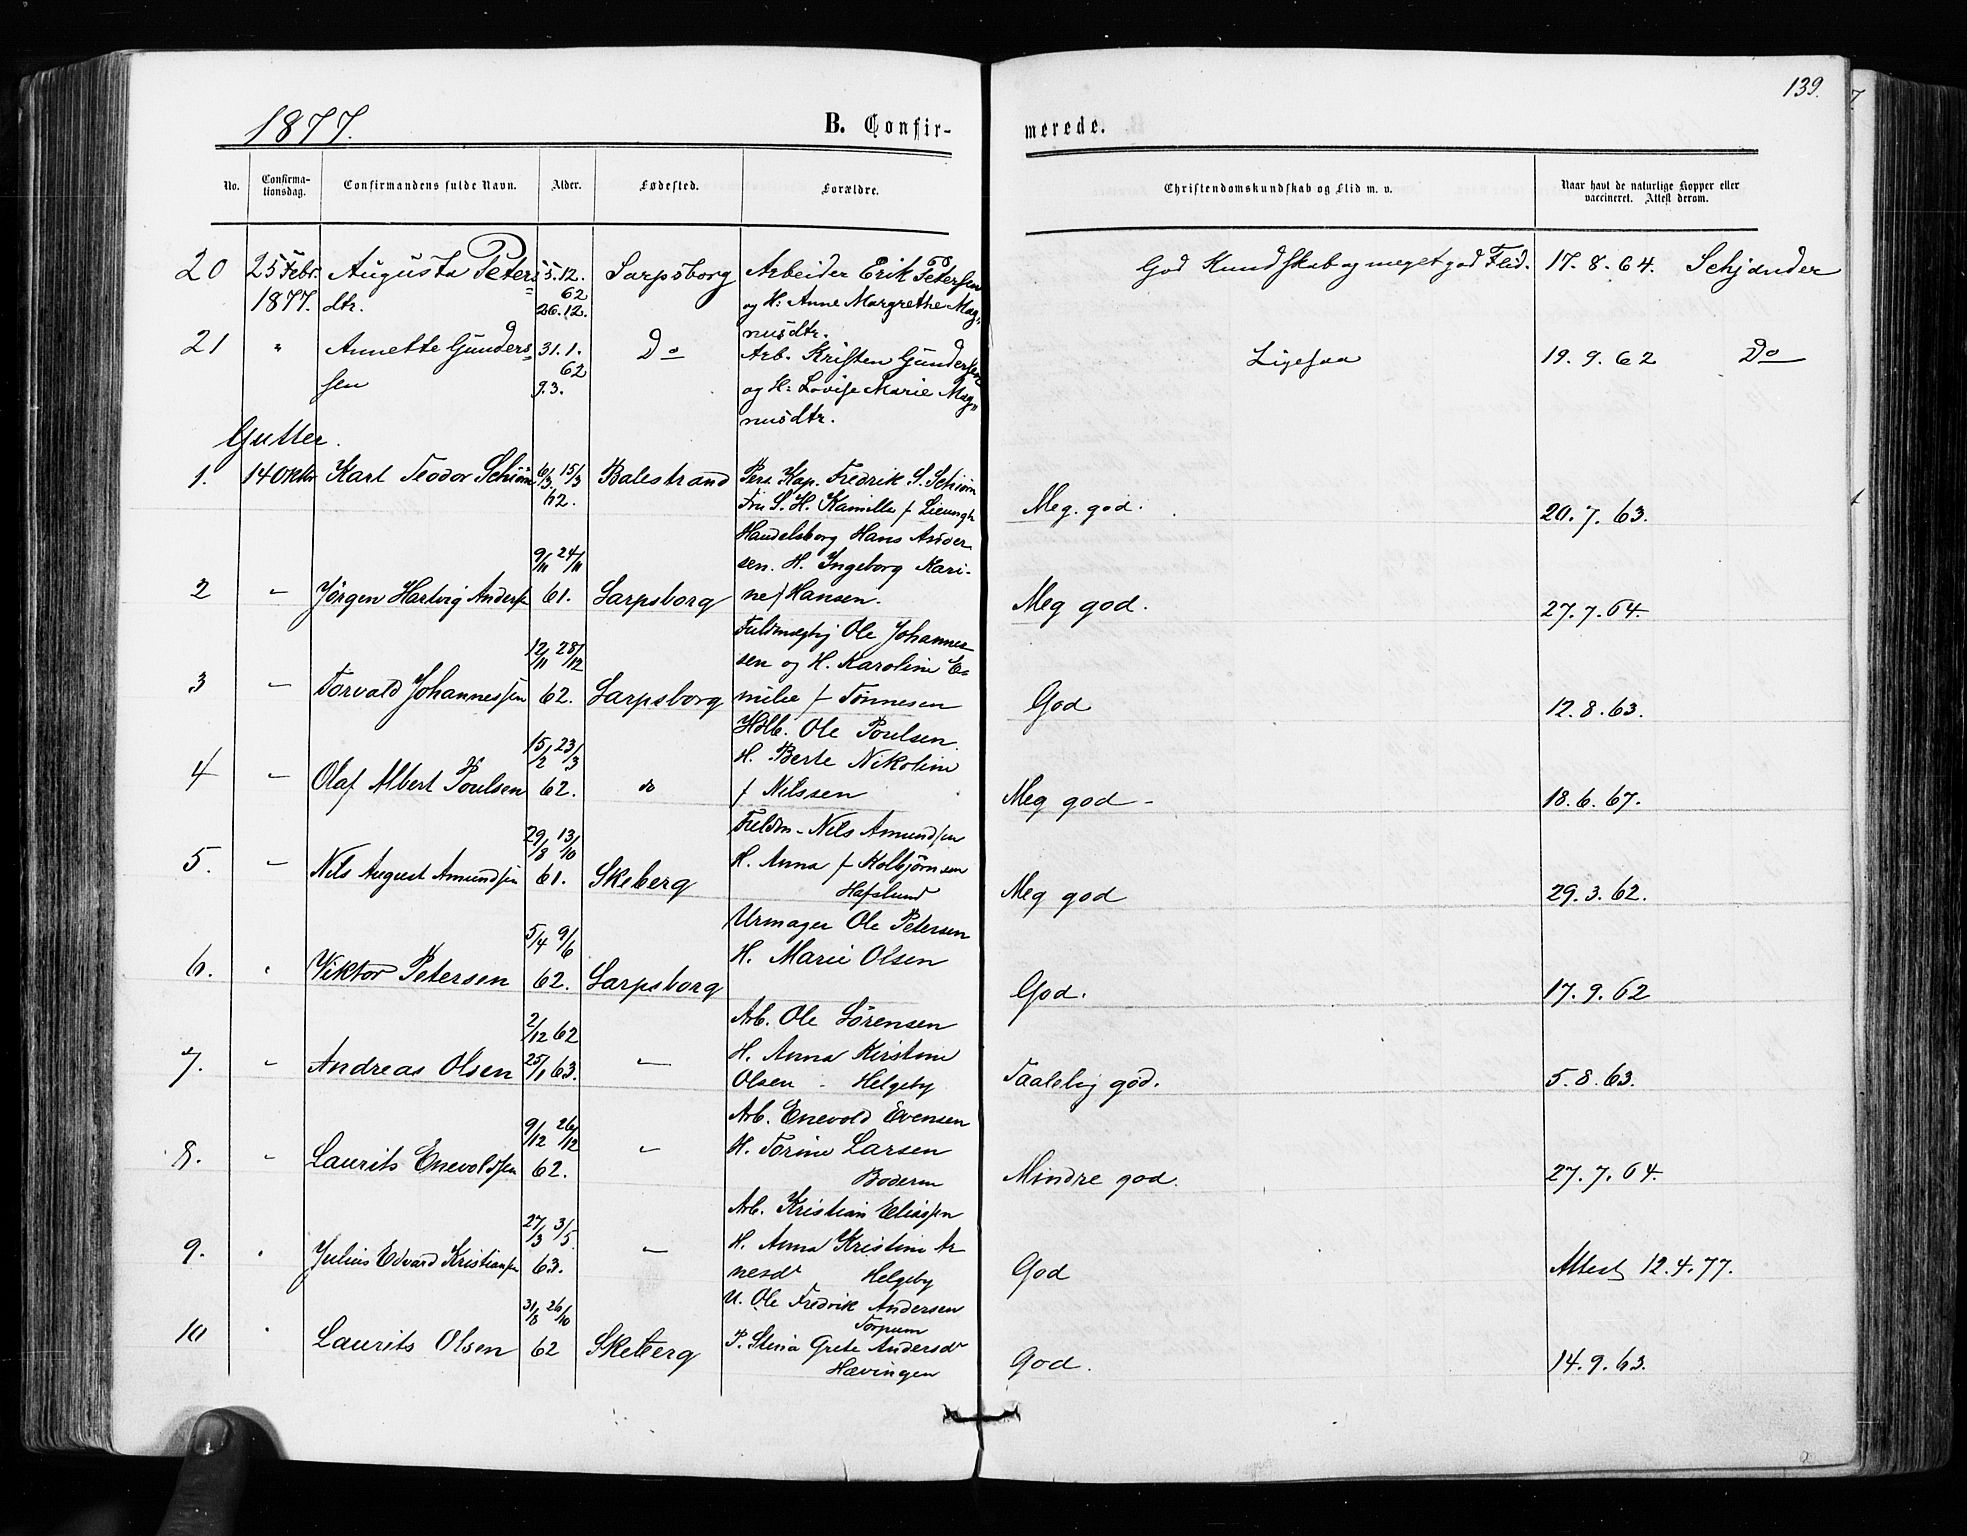 139.
1877. B. Confir- merede.
No. Confirma-tionsdag. Confirmandens fulde Navn. Alder. Fødested. Forældre. Christendomskundskab og Flid m. v. Naar havt de naturlige Kopper eller vaccineret. Attest derom.
20 25 Febr. Augusta Peters= 5.12. Sarpsborg Arbeider Erik Petersen God Kundskab og meget god Flid. 17.8.64. Schjander
1877. dtr. 62 og H: Anne Margrethe Mag=
26.12. nusdtr.
21 " Annette Gunders= 31.1. Do Arb. Kristen Gundersen Ligesaa 19.9.62 Do
sen 62 og H: Lovise Marie Mag=
9.3. nusdtr.
Gutter.
1. 14 Oktr Karl Teodor Schiøn 6/3 15/3 Balestrand Pers. Kap. Fredrik S. Schiøn Meg. god. 20.7.63.
62. Fru S. H. Kamilla f Lieungh
Handelsborg Hans Ander
9/11 24/11 sen. H. Ingeborg Kari-
2 " Jørgen Hartvig Anders 61. Sarpsborg ne f Hansen. Meg god. 27.7.64.
Fuldmægtig Ole Johannes
12/11 28/12 sen og H. Karoline E-
3 " Torvald Johannessen 62. Sarpsborg milie f Tønnesen God 12.8.63.
Hdlb. Ole Poulsen.
15/2 23/3 H. Berte Nikoline
4 " Olaf Albert Poulsen 62. do f Nilssen Meg god - 18.6.67.
29/8 13/10 Fuldm. Nils Amundsen
5. " Nils August Amundsen 61. Skeberg H. Anna f Kolbjørnsen Meg god 29.3.62.
Hafslund
5/4 9/6 Urmager Ole Petersen
6. " Viktor Petersen 62. Sarpsborg H. Marie Olsen God. 17.9.62
2/12 62 Arb. Ole Sørensen
7. " Andreas Olsen 25/1 63. " H. Anna Kirstine Taalelig god. 5.8.63.
Olsen - Helgeby
9/12 26/12 Arb. Enevold Evensen
8. " Laurits Enevoldsen 62. " H. Torine Larsen Mindre god. 27.7.64.
Boderne
27/3 31/5 Arb. Kristian Eliassen
9. " Julius Edvard Kristiansen 63. " H. Anna Kristine Ar God Attest 12.4.77.
nesd Helgeby
31/8 26/10 U. Ole Fredrik Andersen
Torpum
10 " Laurits Olsen 62 Skeberg P. Stina Grete Andersd God. 14.9.63.
Hævingen